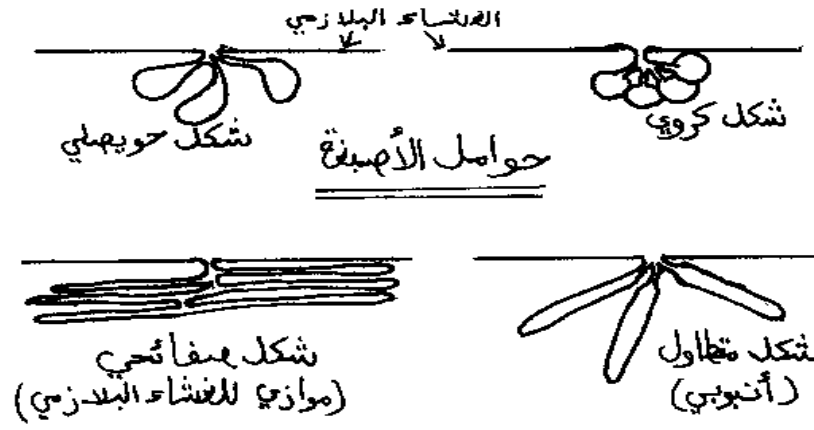 الغشاء البلازمي
شكل كروي
شكل حويصلي
حوامل الأصبغة
شكل متطاول
(أنبوبي)
شكل صفائحي
(موازي للغشاء البلازمي)